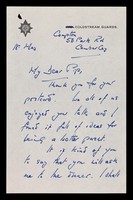 COLDSTREAM GUARDS.
Compton
56 Park Rd
Camberley
18 Mar
My Dear
Thank you for your
postcard. We all of us
enjoyed your talk and I
found it full of ideas for
being a better parent.
It is kind of you
to say that you will ask
me to the Tower. I shall